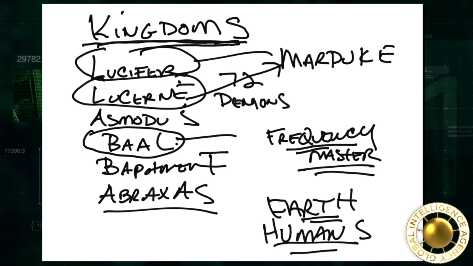 KINGDOMS
LUCIFER
MARDUKE
LUCERNE
72
DEMONS
ASMODUS
BAAL
FREQUENCY
MASTER
BAPHOMENT
ABRAXAS
EARTH
HUMANS
GLOBAL INTELLIGENCE AGENCY
29782.
77590.5